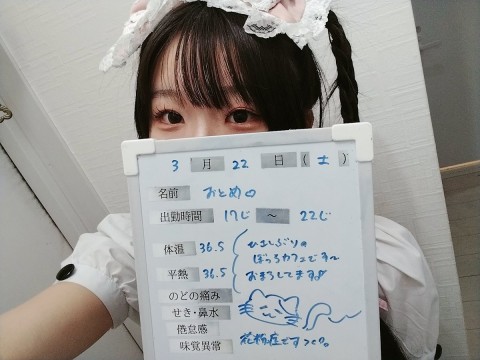 3 月 22 日 ( 土 )
名前 おとめ♡
出勤時間 17じ ～ 22じ
体温 36.5
平熱 36.5
ひさしぶりの
ぼっちカフェです〜
おまちしてます♪
のどの痛み
せき・鼻水
倦怠感
味覚異常
花粉症です